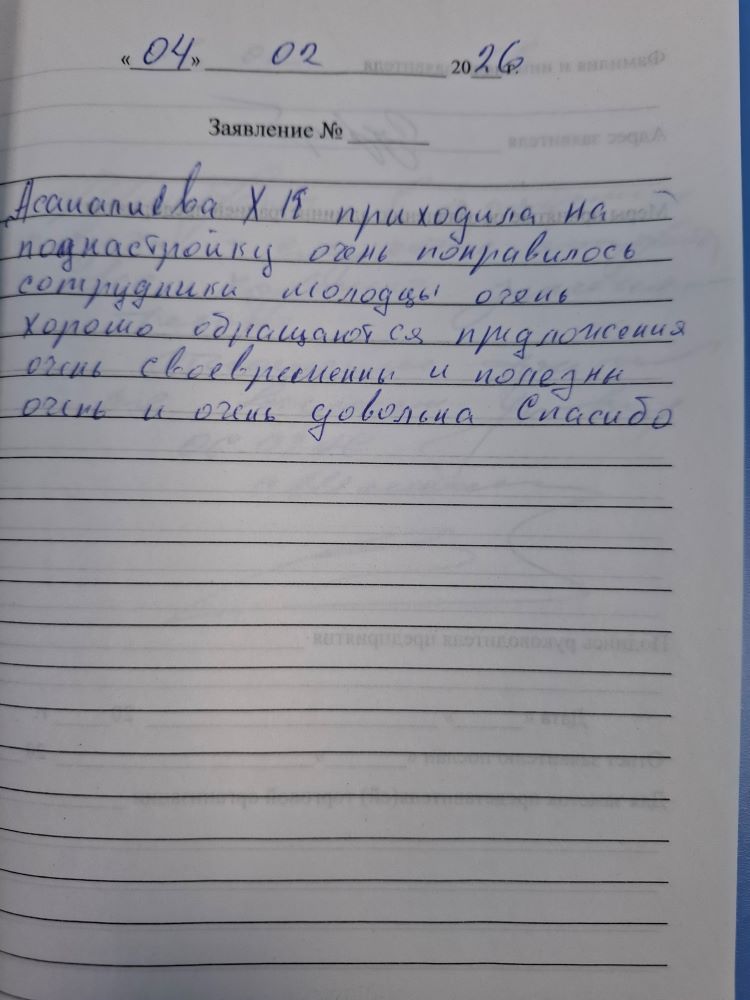 «04» 02 2026 г.
Заявление №
Асаналиева Х приходила на
поднастройку очень понравилось
сотрудники молодцы очень
хорошо обращаются предложения
очень своевременны и полезны
очень и очень довольна Спасибо